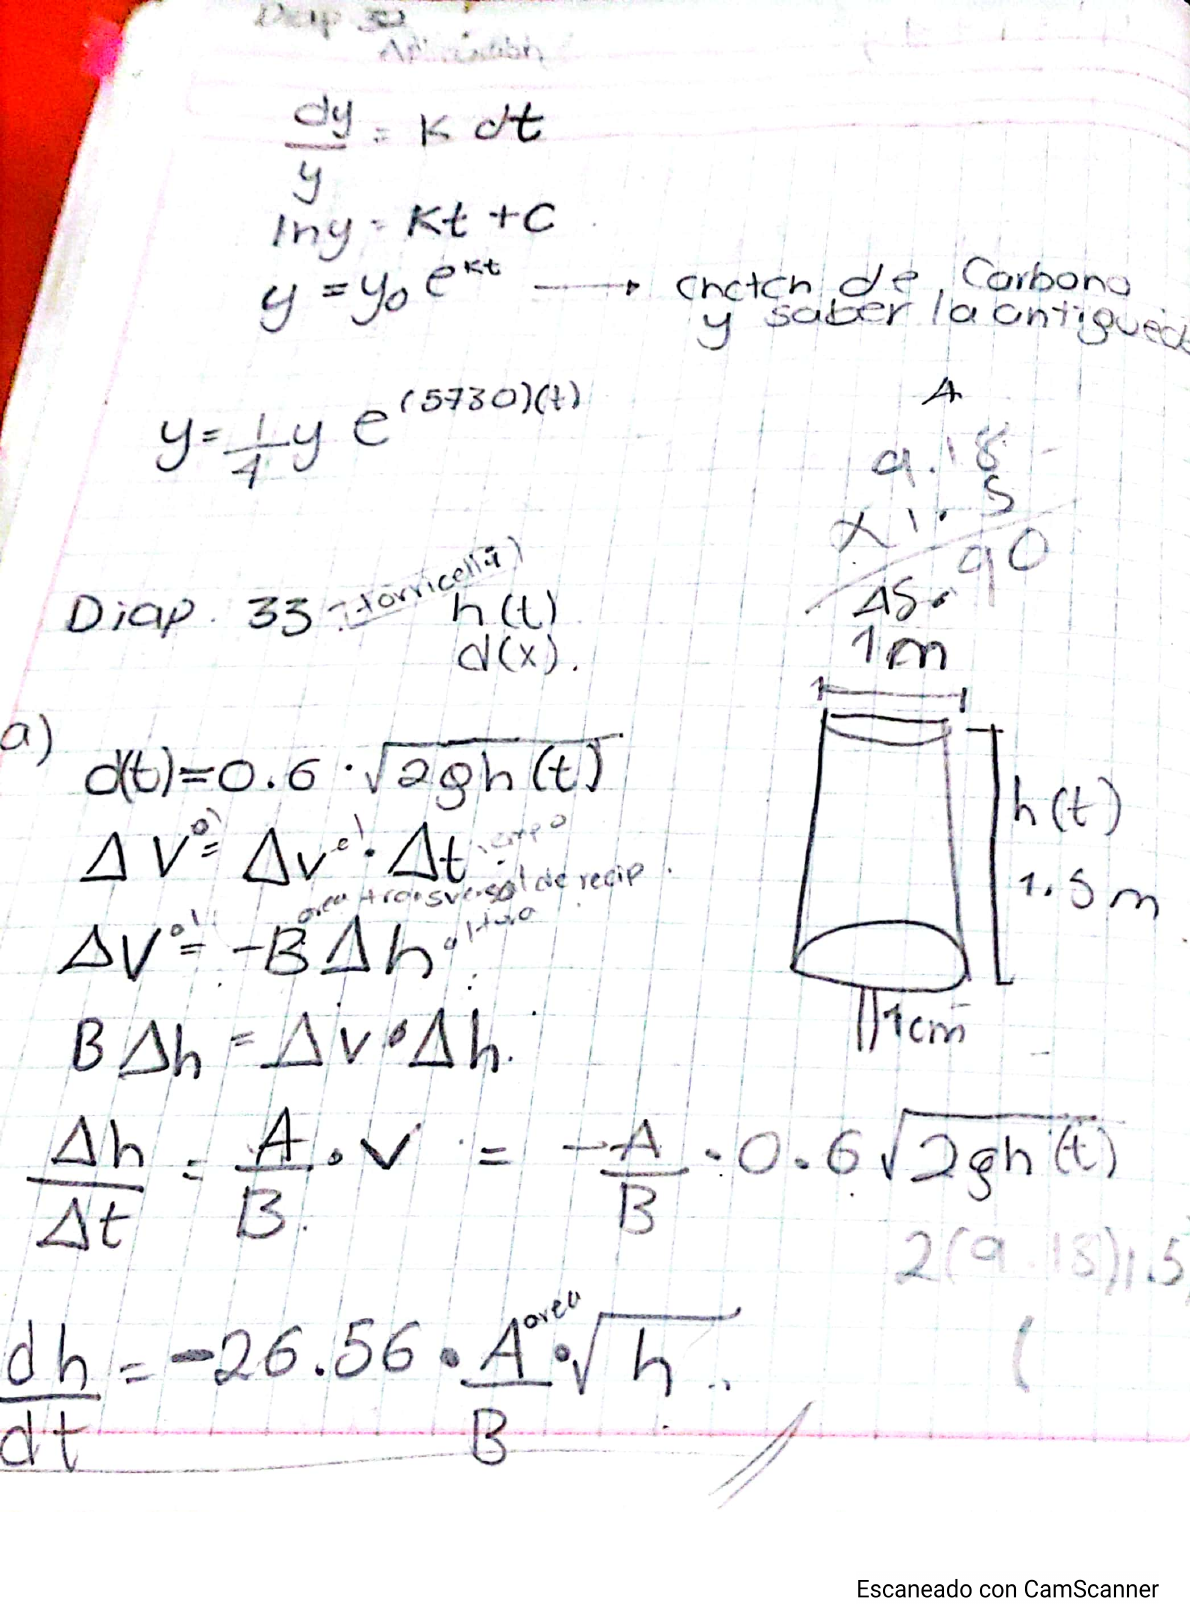 Diap 32
Aplicación
dy/y = K dt
lny = Kt + C
y = y₀ e^{kt} → de Carbono
y saber la antigued
y = 1/4 y e^{(5730)(t)}
A
9.18
x 1.5
90
45.
Diap. 33 torricelli)
h(t)
d(x).
1m
a)
d(t) = 0.6 · √2gh(t)
h(t)
1.5m
ΔV^{ol} = Δv^{el} · Δt
area transversal de recip.
ΔV^{ol} = -BΔh altura
1cm
BΔh = Δv · Δh.
Δh/Δt = A/B · v = -A/B · 0.6 √2gh(t)
2(9.18)1.5
(
dh/dt = -26.56 · A^{area}/B · √h
Escaneado con CamScanner